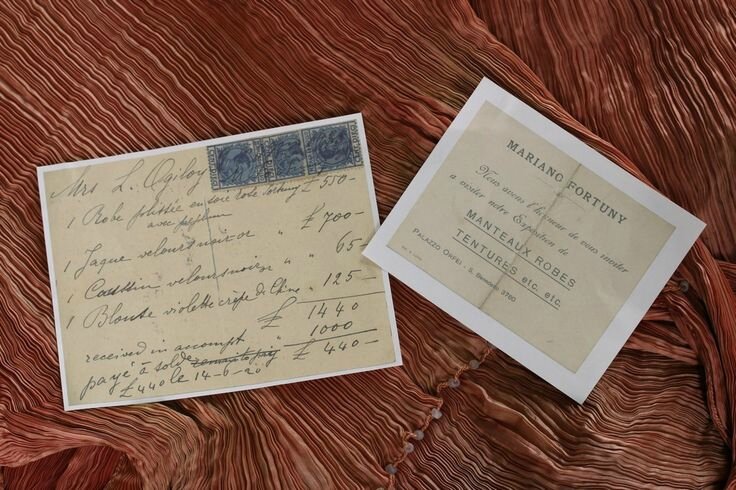 Mrs L. Ogilvy
1 Robe plissée en soie rose fortuny £ 550-
avec peplum
1 Jaque velours noir or " £ 700-
1 Coussin velours noir or " " 65-
1 Blouse violette crêpe di Chine " 125-
£ 1440
received in accompt 1000
payé à solde remain to pay £ 440-
£ 440 le 14-6-20
MARIANO FORTUNY
Nous avons l'honneur de vous inviter
a visiter notre Exposition de
MANTEAUX ROBES
TENTURES etc. etc.
PALAZZO ORFEI - S. Benedetto 3780